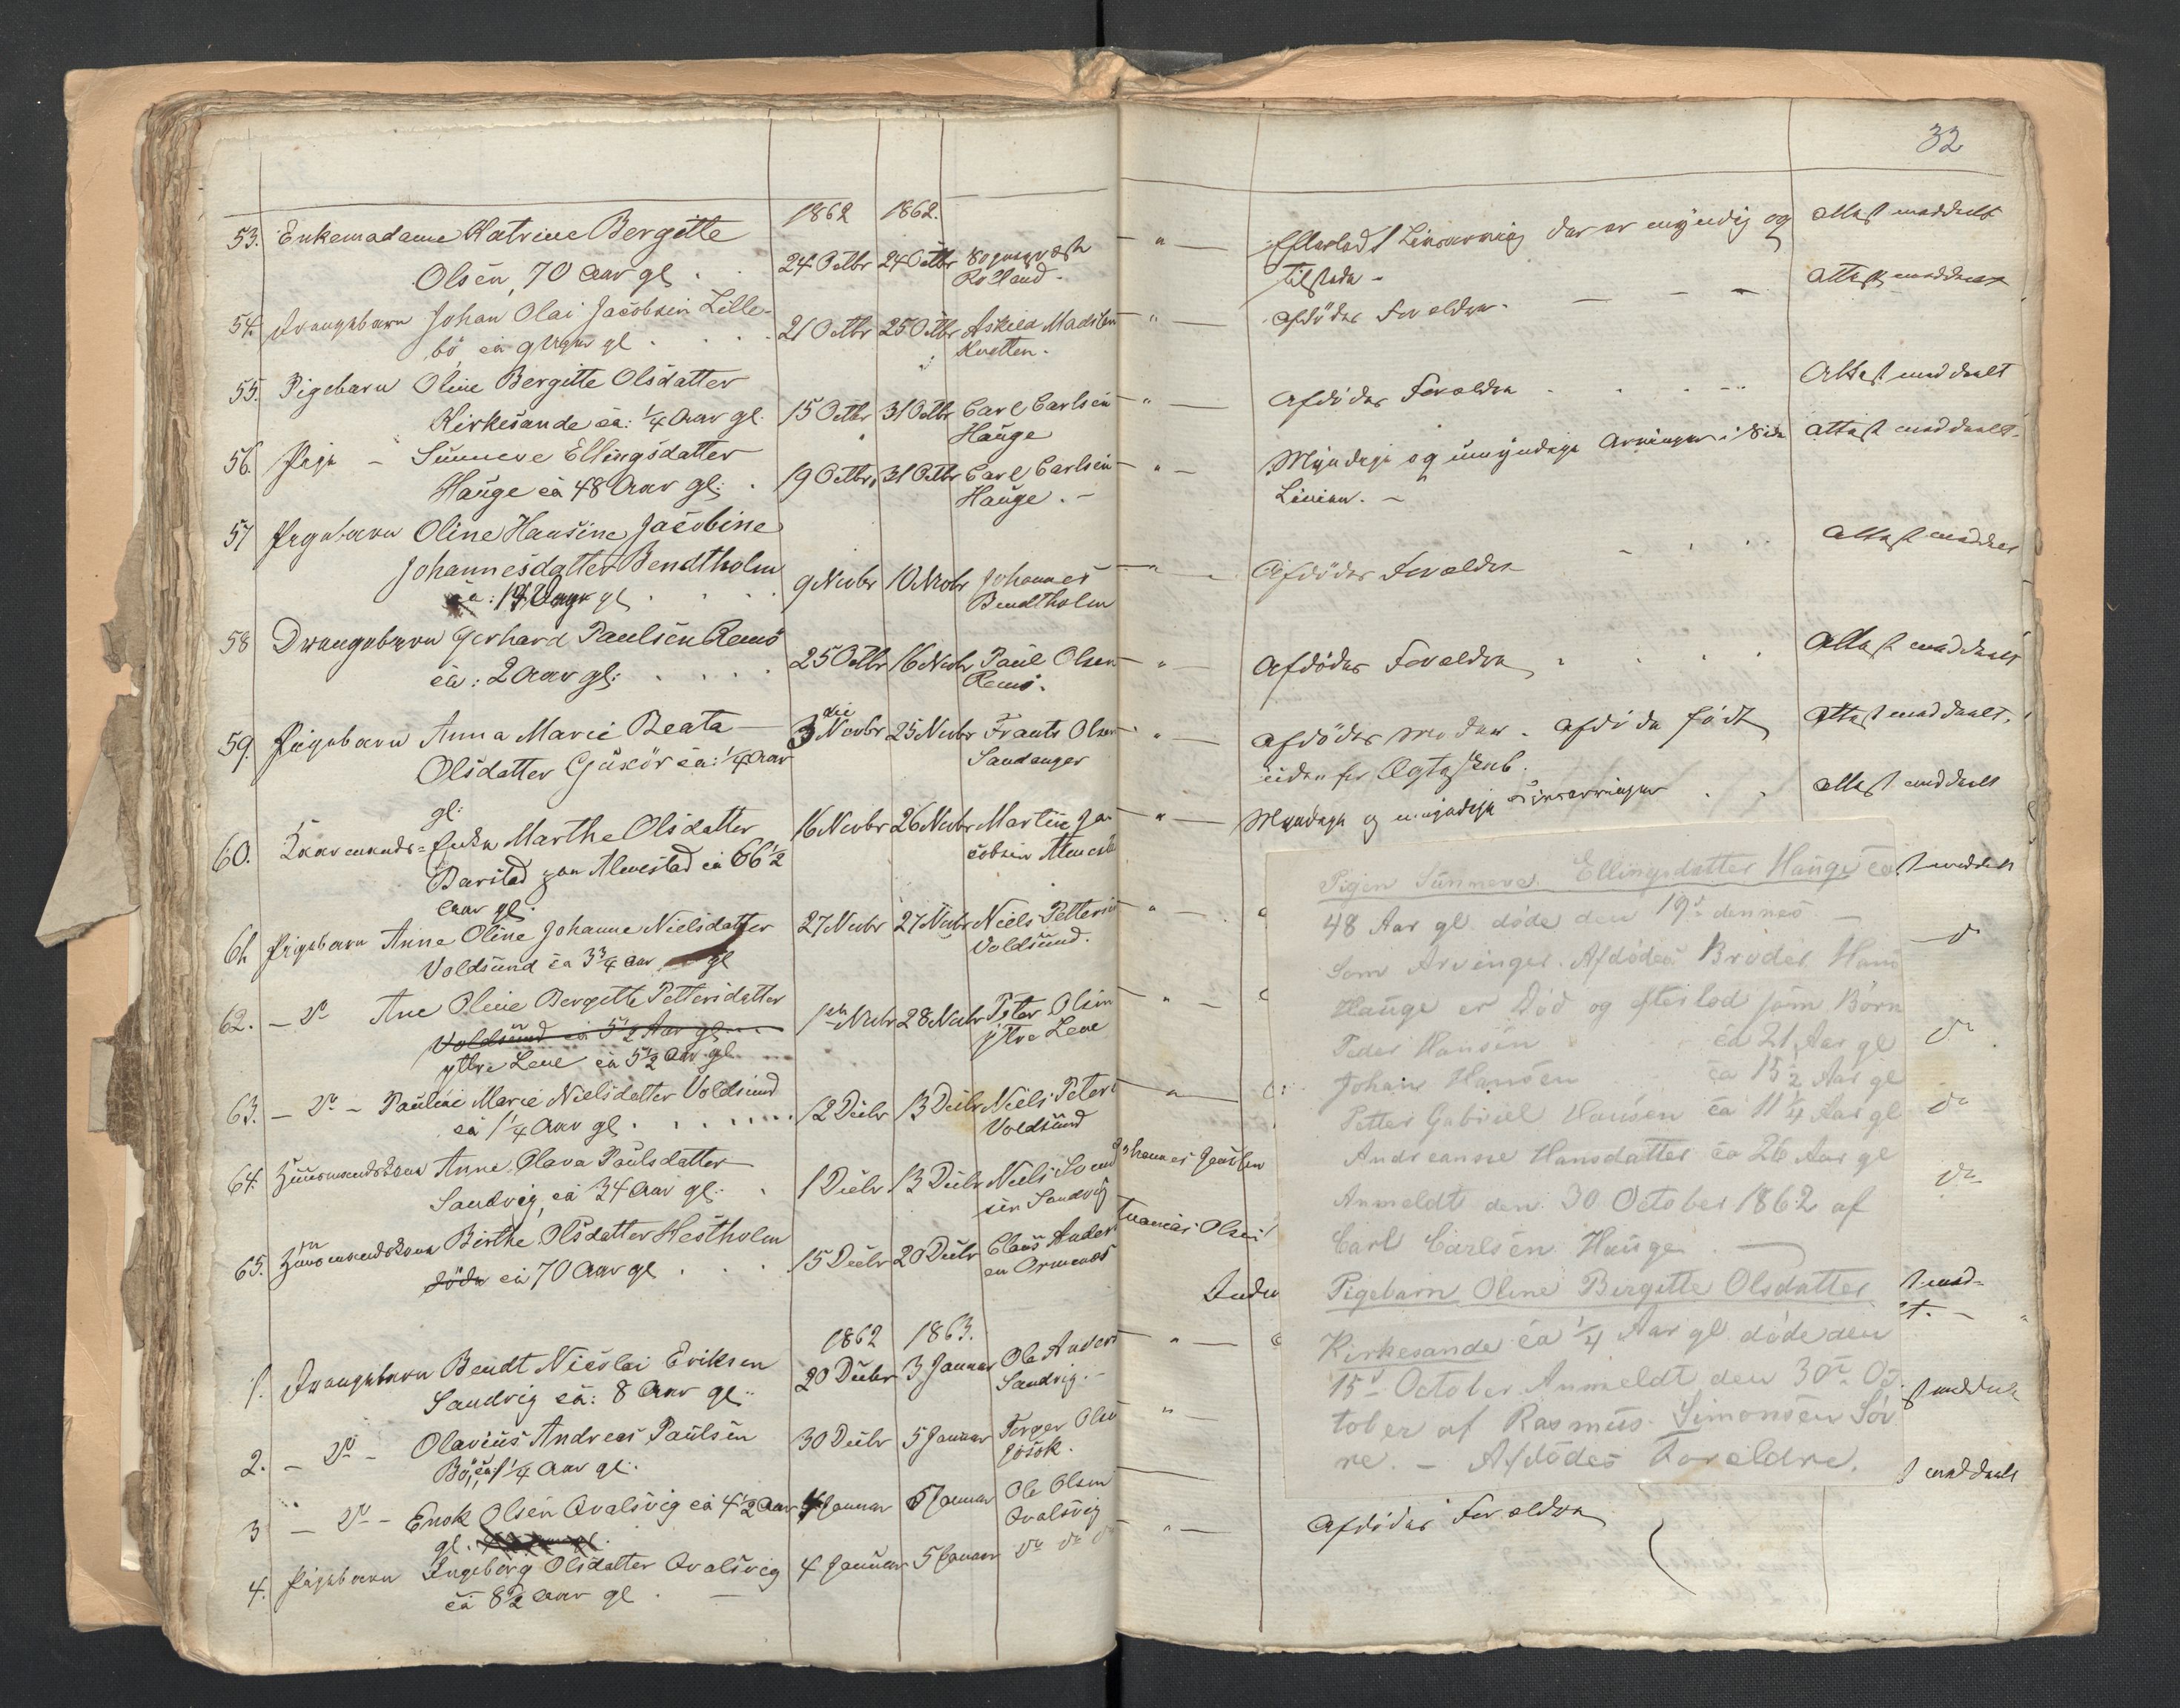 32
1862 1862.
53. Enkemadame Katrine Bergitte
Olsen, 70 Aar gl. 24 Octbr 24 Octbr Sognepræst
Rolland.
Efterladt Livsarving der er myndig og
tilstede - Attest meddeelt
54. Drengebarn Johan Olai Jacobsen Lille-
bö, ca 9 gl 21 Octbr 25 Octbr Askild Madsen
Kvetten.
Afdödes Forældre. Attest meddeelt
55. Pigebarn Oline Bergitte Olsdatter
Kirkesande ca: 1/4 Aar gl. 15 Octbr 31 Octbr Carl Carlsen
Hauge
Afdödes Forældre Attest meddeelt
56. Pige - Sunneve Ellingsdatter
Hauge ca 48 Aar gl: 19 Octbr. 31 Octbr Carl Carlsen
Hauge. -
Myndige og umyndige Arvinger i Side
Linien. - Attest meddeelt.
57 Pigebarn Oline Hansine Jacobine
Johannesdatter Bendtholm
ca: gl 9 Novbr 10 Novbr Johannes
Bendtholm
Afdödes Forældre Attest meddeelt
58 Drengebarn Gerhard Paulsen Remö
ca: 2 Aar gl: 25 Octbr 16 Novbr Paul Olsen
Remö.
Afdödes Forældre Attest meddeelt
59. Pigebarn Anna Marie Beata
Olsdatter Gjuxör ca: 1/4 Aar
gl: 3die Novbr 25 Novbr Frants Olsen
Sandanger
Afdödes Moder. Afdöde födt
uden for Ægteskab. Attest meddeelt.
60. Kaarmands-Enke Marthe Olsdatter
Barstad paa Almestad ca 66 1/2
Aar gl. 16 Novbr 26 Novbr Martin Ja-
cobsen
Myndige og umyndige Livsarvinger Attest meddeelt
61. Pigebarn Anne Oline Johanne Nielsdatter
Voldsund ca 3 3/4 Aar gl 27 Novbr 27 Novbr Niels Petters
Voldsund.
62. - do Ane Oline Bergitte Pettersdatter
Voldsund ca 5 1/2 Aar gl
yttre Lene ca 5 1/2 Aar gl. 28 Novbr Peter Olsen
yttre Lene
63. - do - Pauline Marie Nielsdatter Voldsund
ca 1 1/4 Aar gl. 12 Decbr 13 Decbr Niels Peters
Voldsund
64. Huusmandskone Anne Olava Paulsdatter
Sandvig, ca 34 Aar gl. 1 Decbr 13 Decbr Niels
sen Sandvig
65. Huusmandskone Birthe Olsdatter Hestholm
döde ca 70 Aar gl 15 Decbr 20 Decbr Claus Anders
en
1862 1863.
1. Drengebarn Bendt Nicolai Eriksen
Sandvig ca: 8 Aar gl: 20 Decbr 3 Januar Ole Anders
Sandvig. -
2. - do - Olavius Andreas Paulsen
Bö, ca: 1 1/4 Aar gl. 30 Decbr 5 Januar Torger Olsen
Jösok.
3 - do - Enok Olsen Qvalsvig ca 4 1/2 Aar
gl. 4 Januar 5 Januar Ole Olsen
Qvalsvig
4. Pigebarn Ingeborg Olsdatter Qvalsvig
ca 8 1/2 Aar gl 4 Januar 5 Januar do do do
Afdödes Forældre
Pigen Sunneve Ellingsdatter Hauge ca
48 Aar gl. döde den 19de dennes
Som Arvinger. Afdödes Broder Hans
Hauge er Död og efterlod som Börn
Peder Hansen ca 21 Aar gl
Johan Hansen ca 15 1/2 Aar gl
Petter Gabriel Hansen ca 11 1/4 Aar gl
Andreanse Hansdatter ca 26 Aar gl
Anmeldt den 30 October 1862 af
Carl Carlsen Hauge
Pigebarn Oline Bergitte Olsdatter
Kirkesande ca 1/4 Aar gl. döde den
15de October Anmeldt den 30te Oc-
tober af Rasmus Simonsen Sör
re. - Afdödes Forældre.